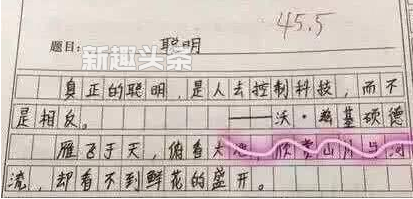 45.5
题目: 聪明
新趣头条
真正的聪明，是人去控制科技，而不
是相反。
——沃·兹基硕德
雁飞于天，俯看大地，欣赏山川与河
流，却看不到鲜花的盛开。